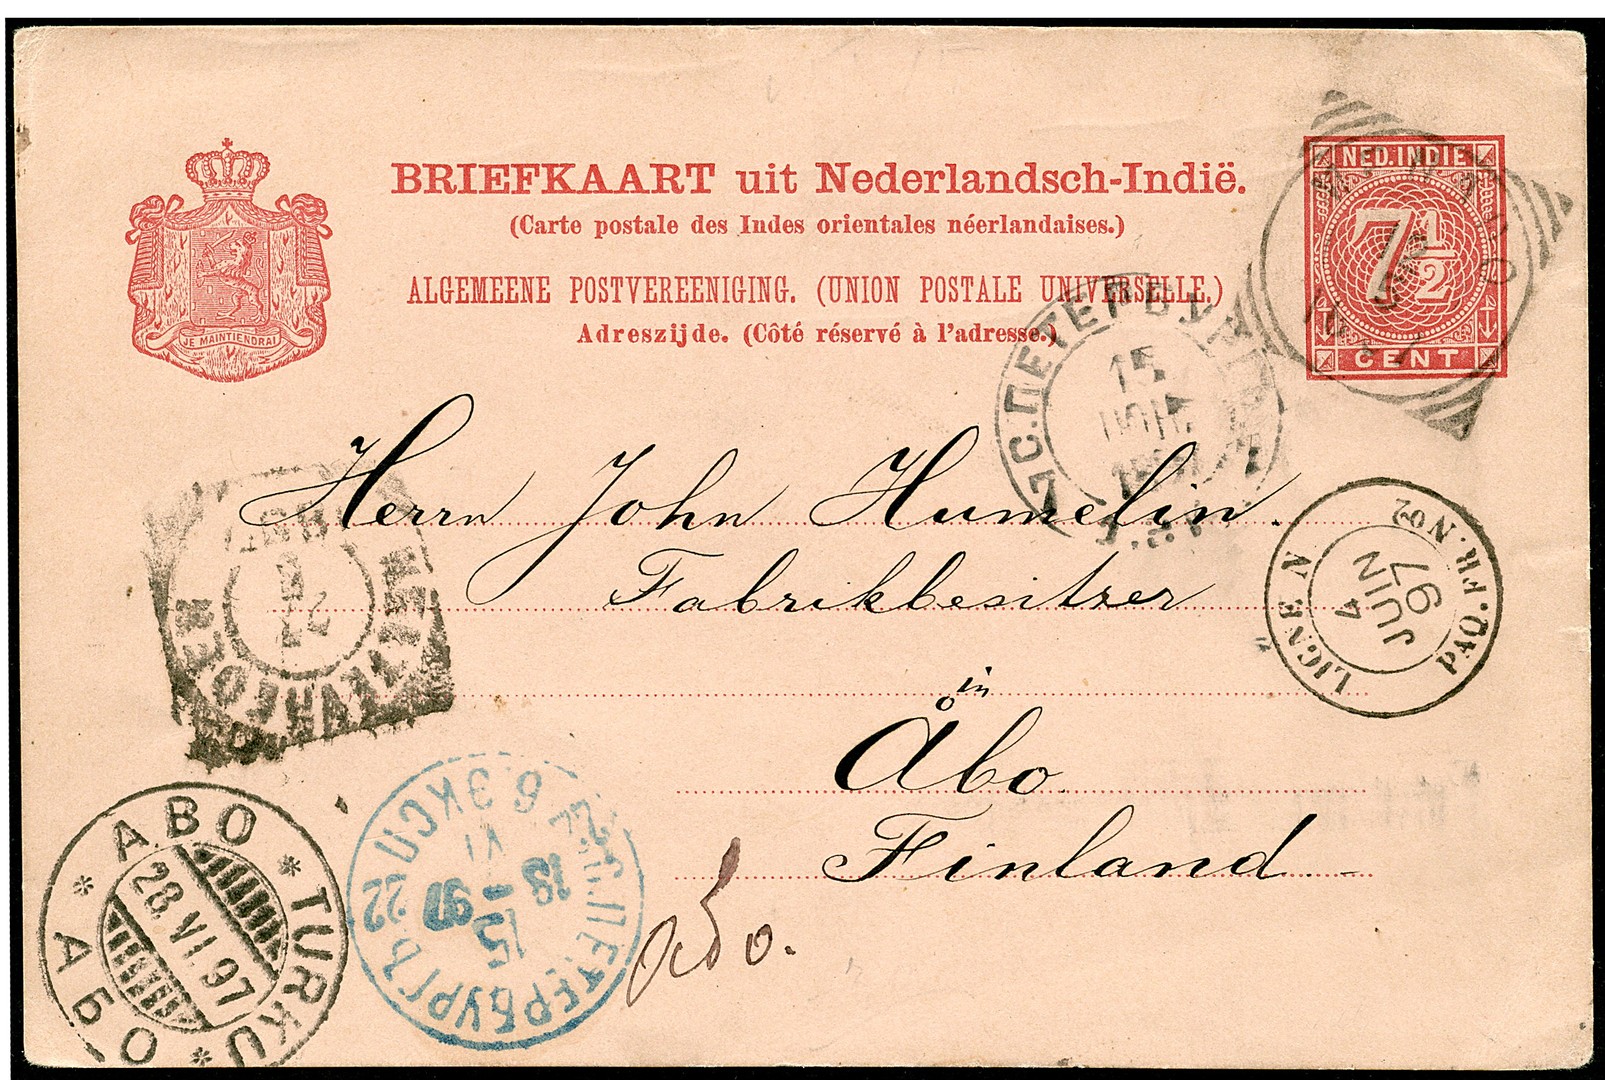 BRIEFKAART uit Nederlandsch-Indië.
(Carte postale des Indes orientales néerlandaises.)
ALGEMEENE POSTVEREENIGING. (UNION POSTALE UNIVERSELLE.)
Adreszijde. (Côté réservé à l'adresse.)
JE MAINTIENDRAI
NED. INDIE
7 1/2
CENT
С.ПЕТЕРБУРГ
15
Herrn John Humelin.
Fabrikbesitzer
in
Åbo
Finland
LIGNE N
PAQ. FR. No 2
4
JUIN
97
WELTEVREDEN
С.ПЕТЕРБУРГЪ
6. ЭКСП.
VI
13
97
15
22
ABO * TURKU * АБО *
28. VI. 97
Åbo.